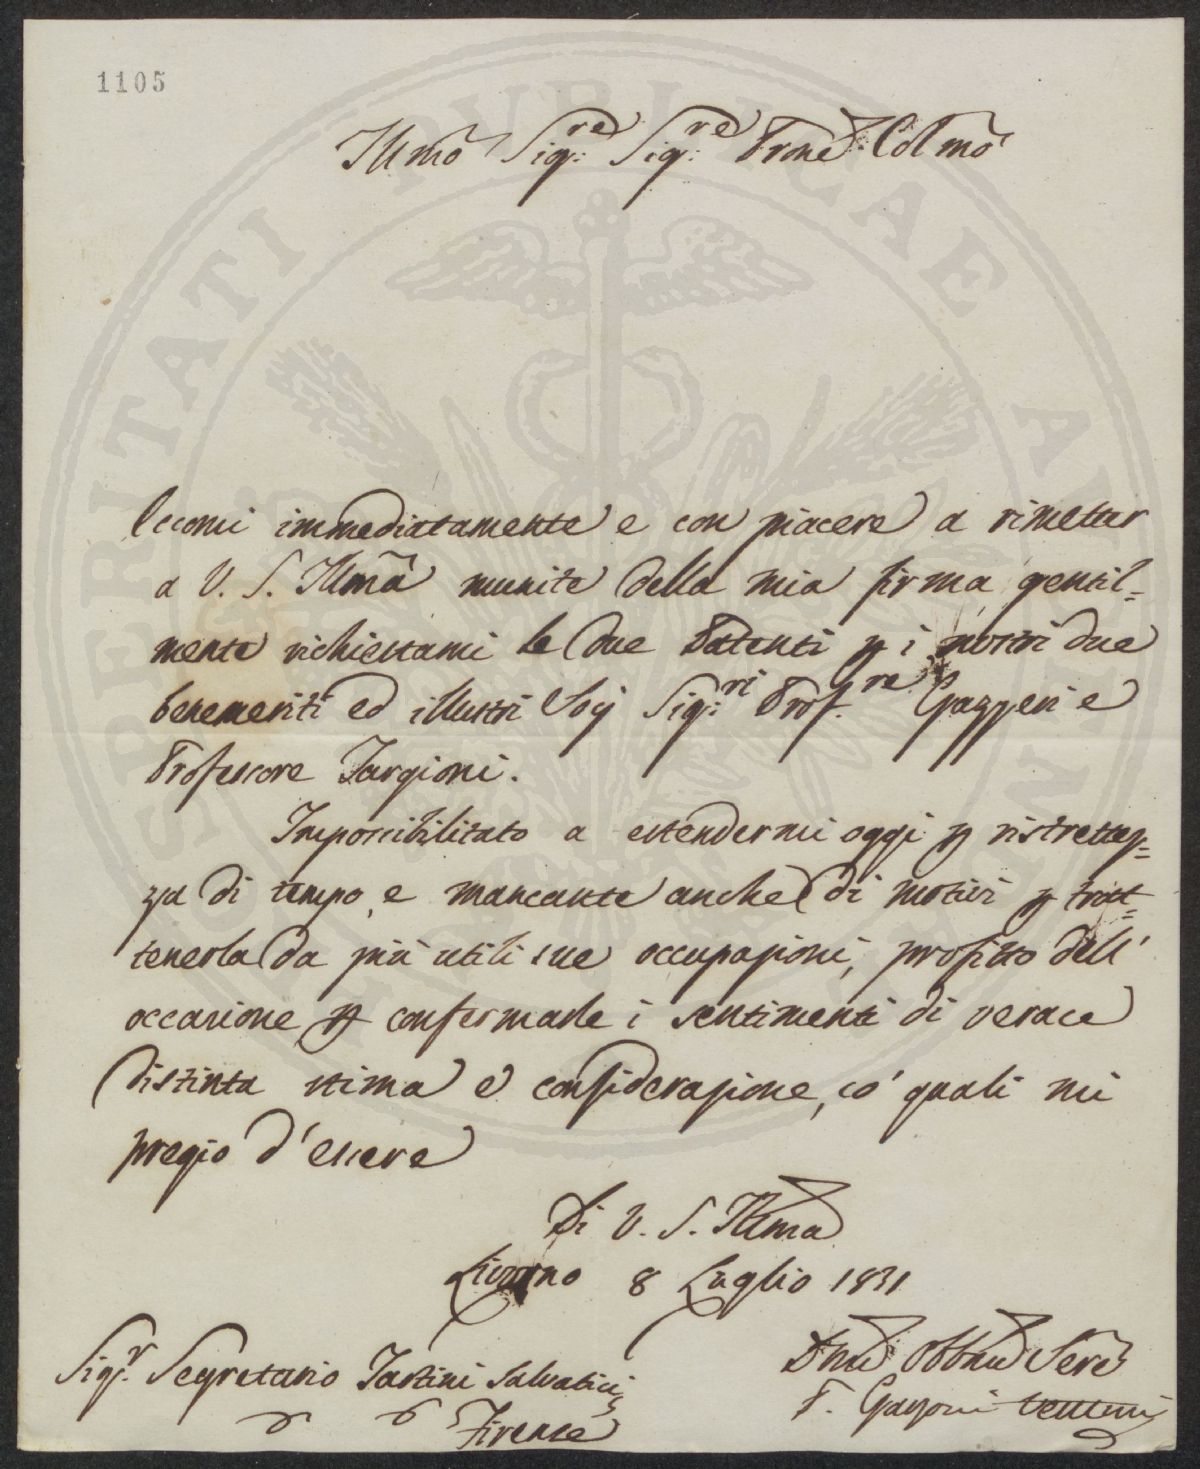 1105
Illmo Sigre Sigre Prone Colmo
Eccomi immediatamente e con piacere a rimetter
a V. S. Illma munite della mia firma gentil=
mente richiestami le due Patenti p i nostri due
benemeriti ed illustri Socj Sigri Profre Gazzeri e
Professore Targioni.
Impossibilitato a estendermi oggi p ristrettez=
za di tempo, e mancante anche di motivi p trat=
tenerla da più utili sue occupazioni, profitto dell'
occasione p confermarle i sentimenti di verace
distinta stima e considerazione, co' quali mi
pregio d'essere
Di V. S. Illma
Livorno 8 Luglio 1831
Sigr Segretario Tartini Salvatici
Firenze
Dmo Obbmo Sere
PROSPERITATI PUBLICAE AUGENDAE